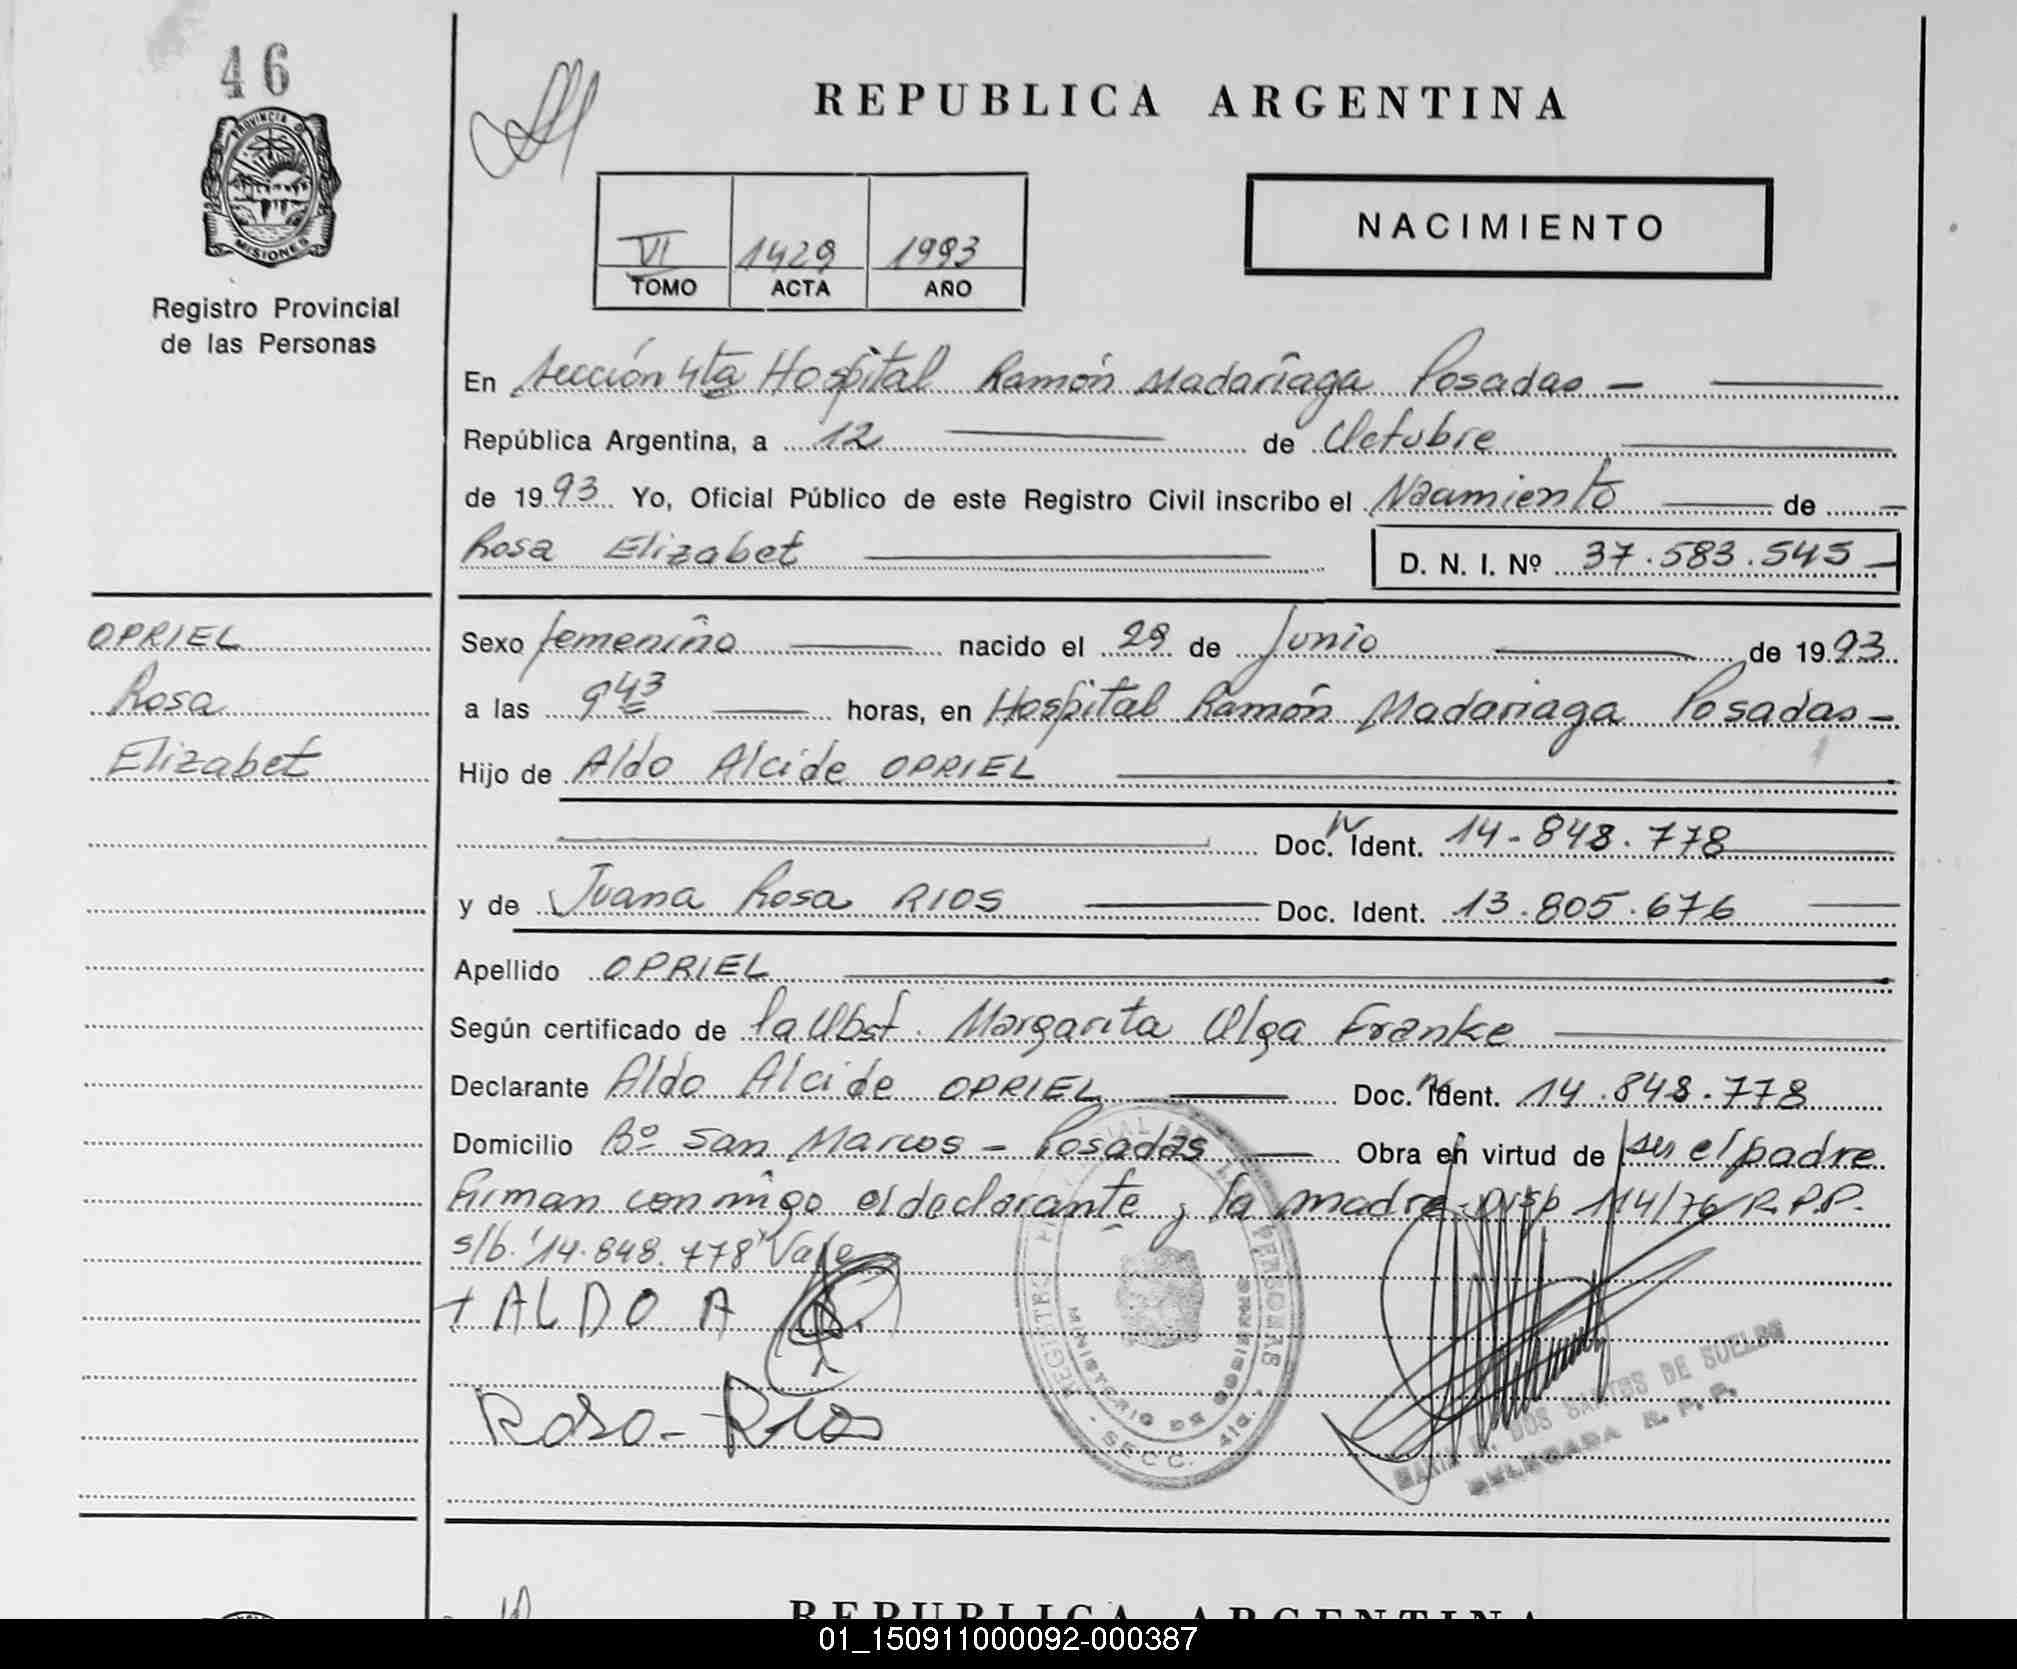 46
PROVINCIA DE
MISIONES
Registro Provincial
de las Personas
REPUBLICA ARGENTINA
NACIMIENTO
VI 1429 1993
TOMO ACTA AÑO
En Sección 4ta Hospital Ramón Madariaga Posadas —
República Argentina, a 12 de Octubre
de 1993 Yo, Oficial Público de este Registro Civil inscribo el Nacimiento de
Rosa Elizabet D. N. I. Nº 37.583.545
OPRIEL
Rosa
Elizabet
Sexo femenino nacido el 29 de Junio de 1993
a las 9 43 horas, en Hospital Ramón Madariaga Posadas —
Hijo de Aldo Alcide OPRIEL
Doc. Ident. 14.848.778
y de Juana Rosa RIOS Doc. Ident. 13.805.676
Apellido OPRIEL
Según certificado de la Obst. Margarita Olga Franke
Declarante Aldo Alcide OPRIEL Doc. Ident. 14.848.778
Domicilio Bº San Marcos — Posadas Obra en virtud de ser el padre
Firman conmigo el declarante y la madre. Disp 114/76 R.P.P.
s/b. "14.848.778" Vale
ALDO A
Rosa - Rios
PERSONAS
MINISTERIO DE GOBIERNO
SECC. 4ta.
DOS SANTOS DE SUELDS
DELEGADA R. P. P.
REPUBLICA ARGENTINA
01_150911000092-000387